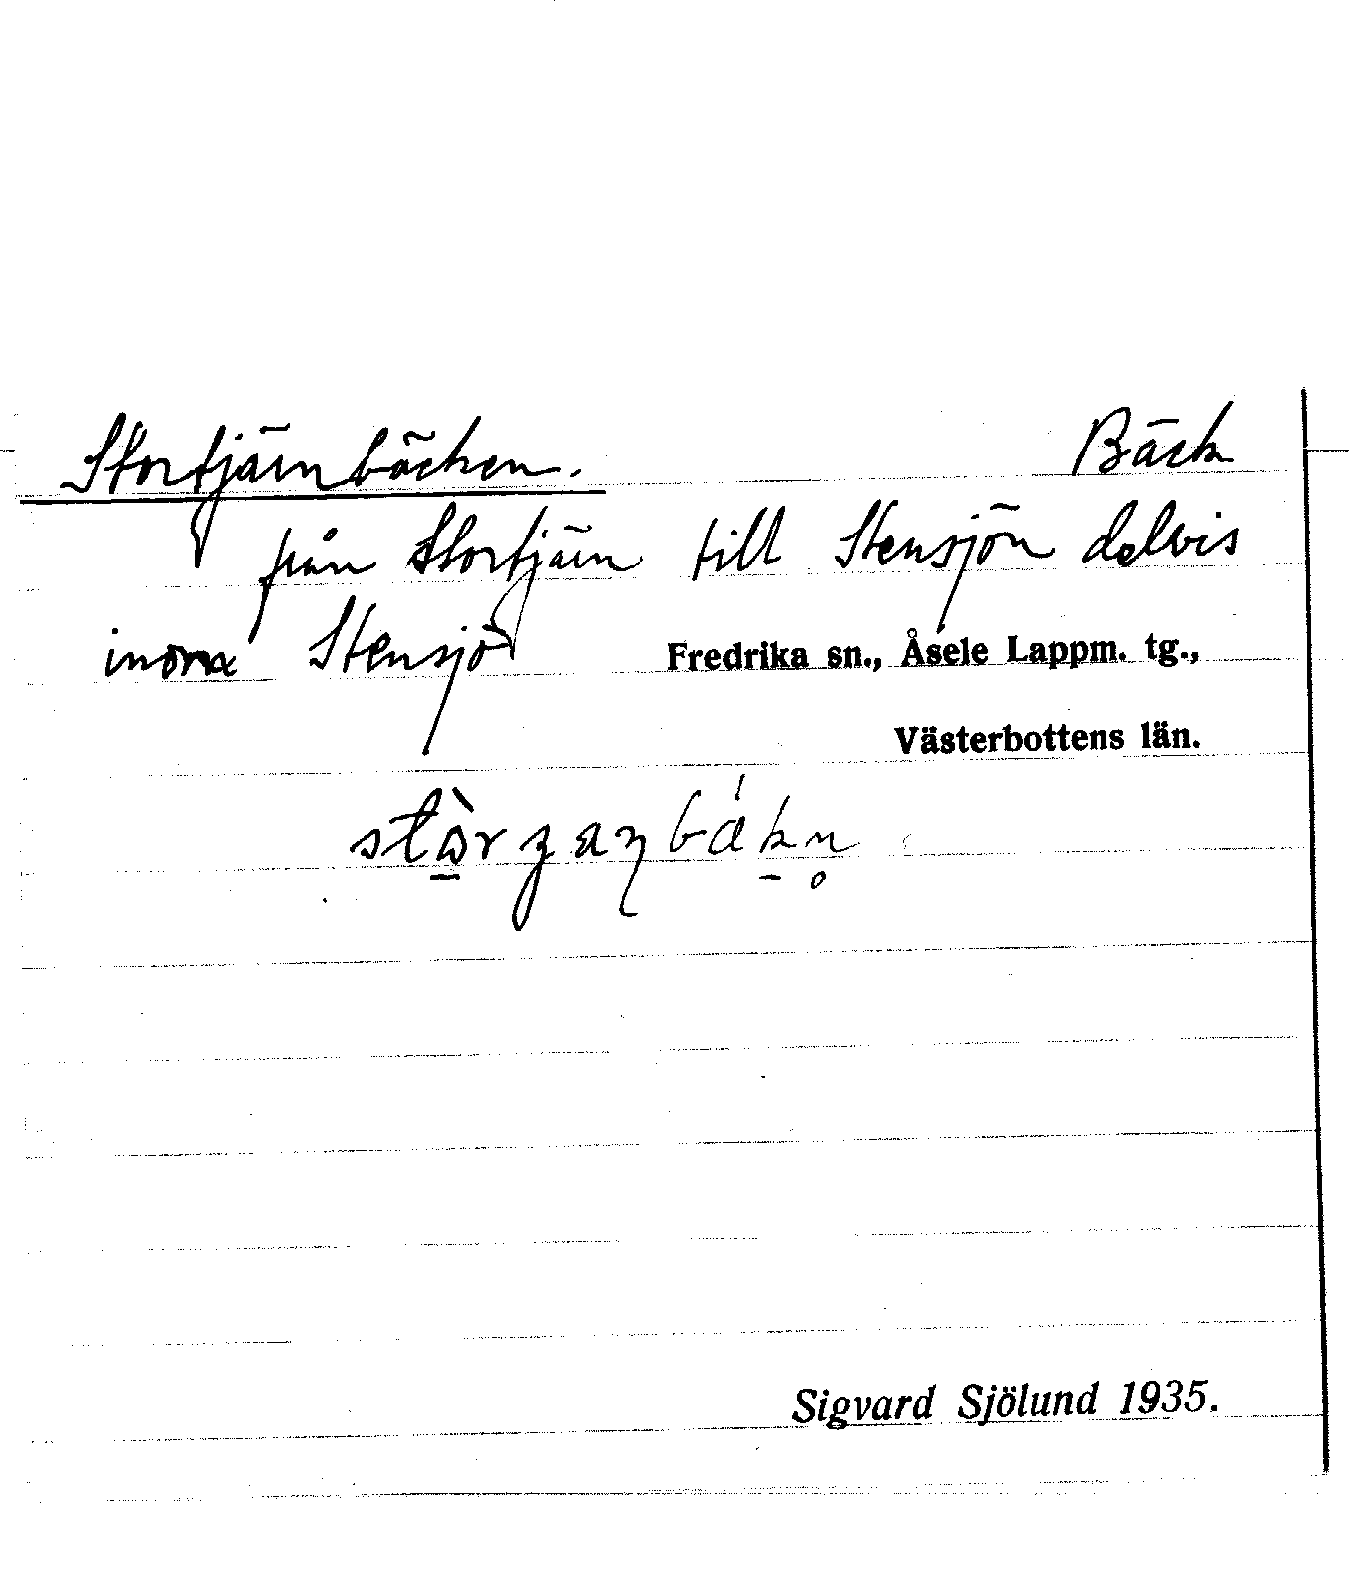 Stortjärnbäcken. Bäck
från Stortjärn till Stensjön delvis
inom Stensjö Fredrika sn., Åsele Lappm. tg.,
Västerbottens län.
Sigvard Sjölund 1935.